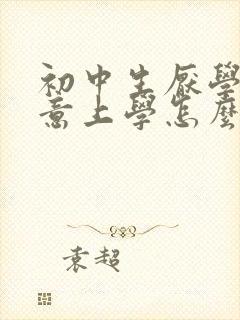 初中生厭學
意上學怎麼
袁超